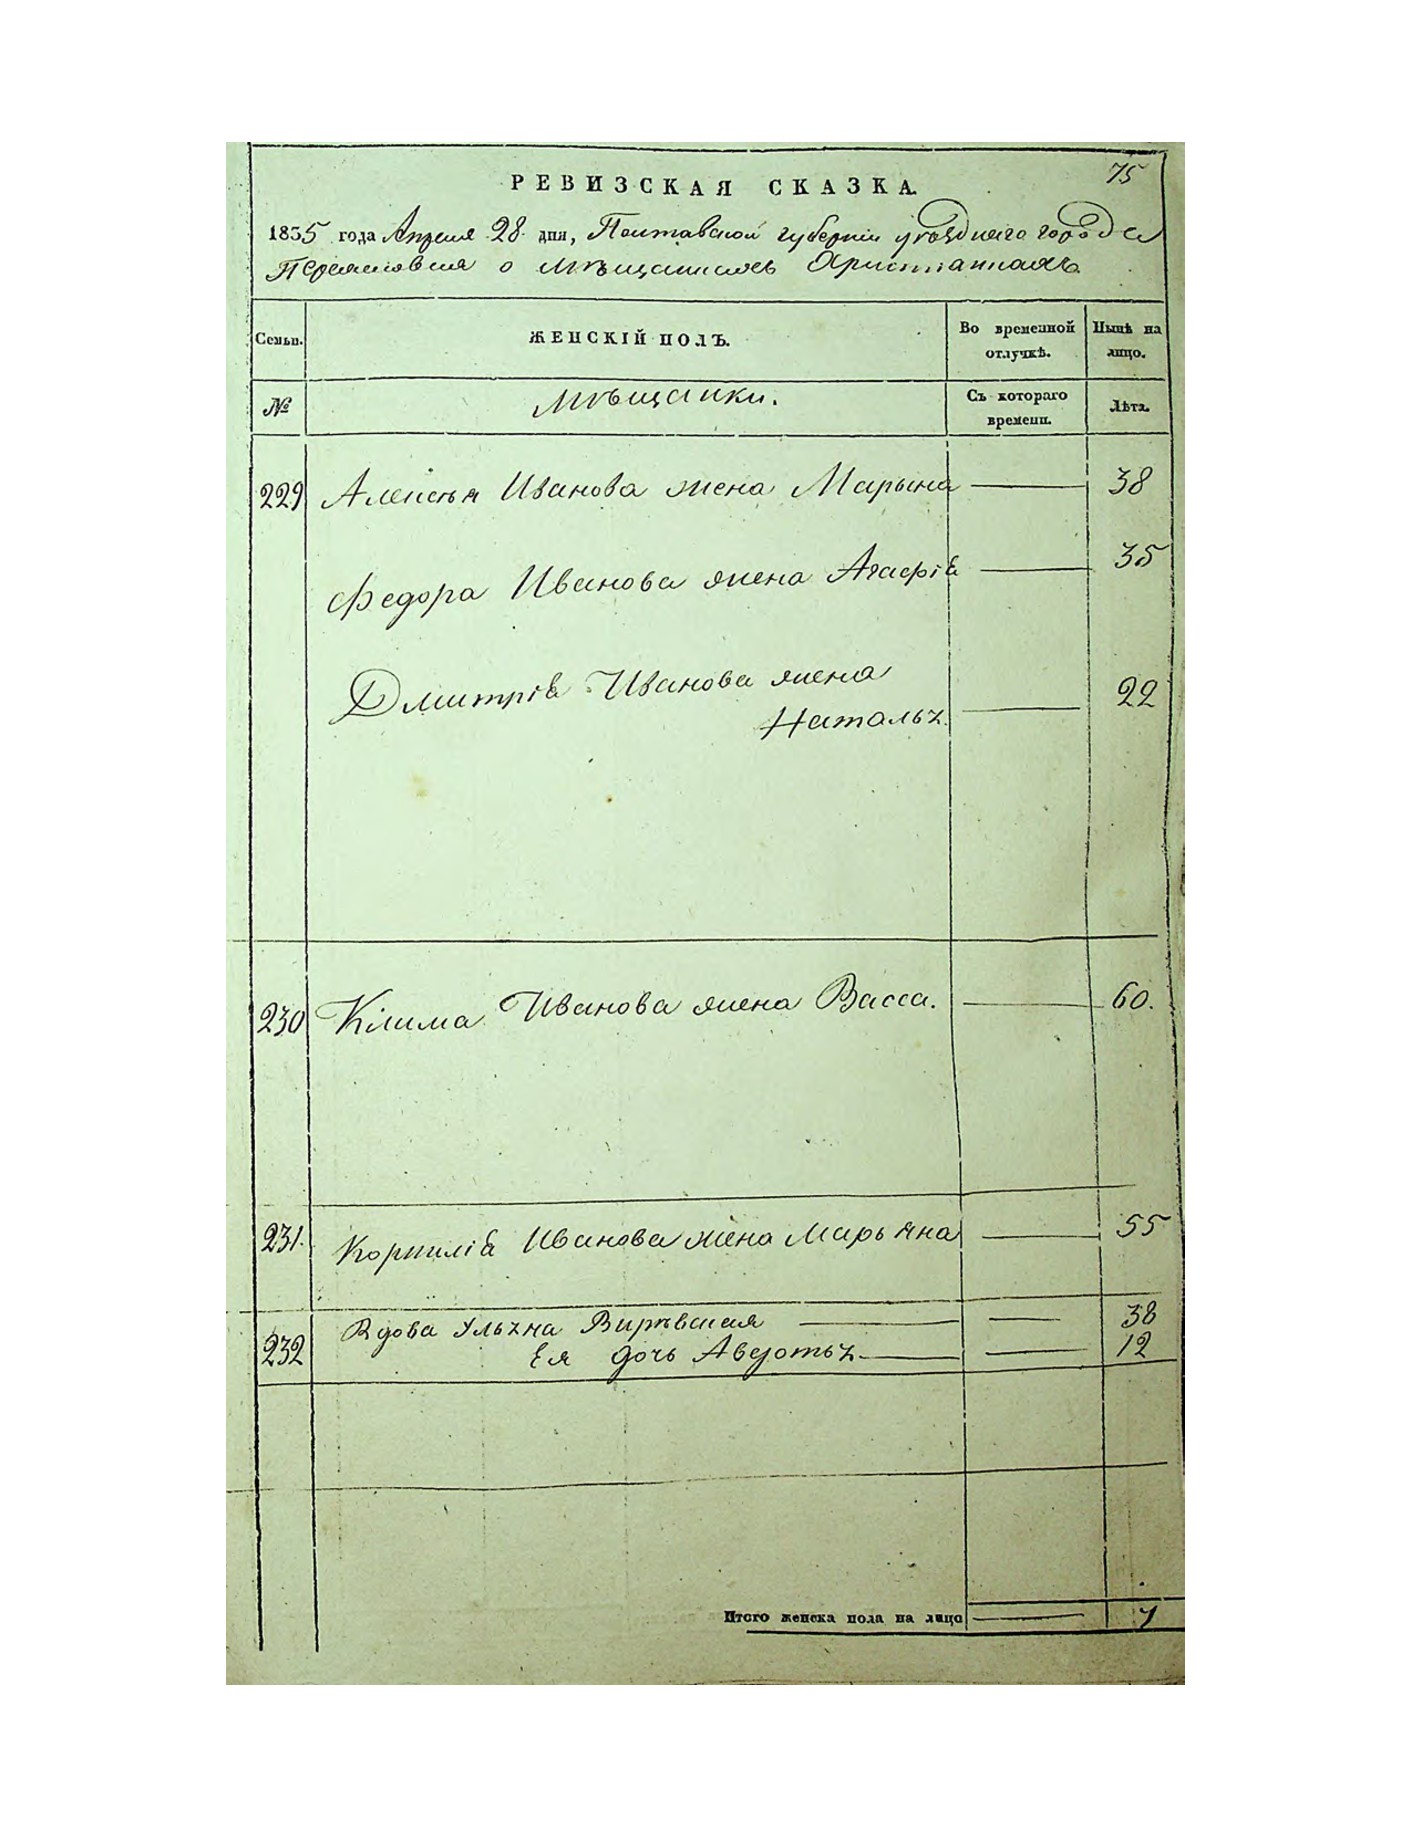 75
РЕВИЗСКАЯ СКАЗКА.
1835 года Апреля 28 дня, Полтавской губернии уѣзднаго города
Переяславля о мѣщанахъ Христіанахъ
Семьи. ЖЕНСКІЙ ПОЛЪ. Во временной отлучкѣ. Нынѣ на лицо.
№ Мѣщанки. Съ котораго времени. Лѣта.
229 Алексѣя Иванова жена Марына 38
Федора Иванова жена Агафія 35
Дмитрія Иванова жена 22
Наталья
230 Клима Иванова жена Васса. 60.
231. Корнилія Иванова жена Марьяна 55
232 Вдова Ульяна 38
Ея дочь Авдотья 12
Итого женска пола на лицо 7